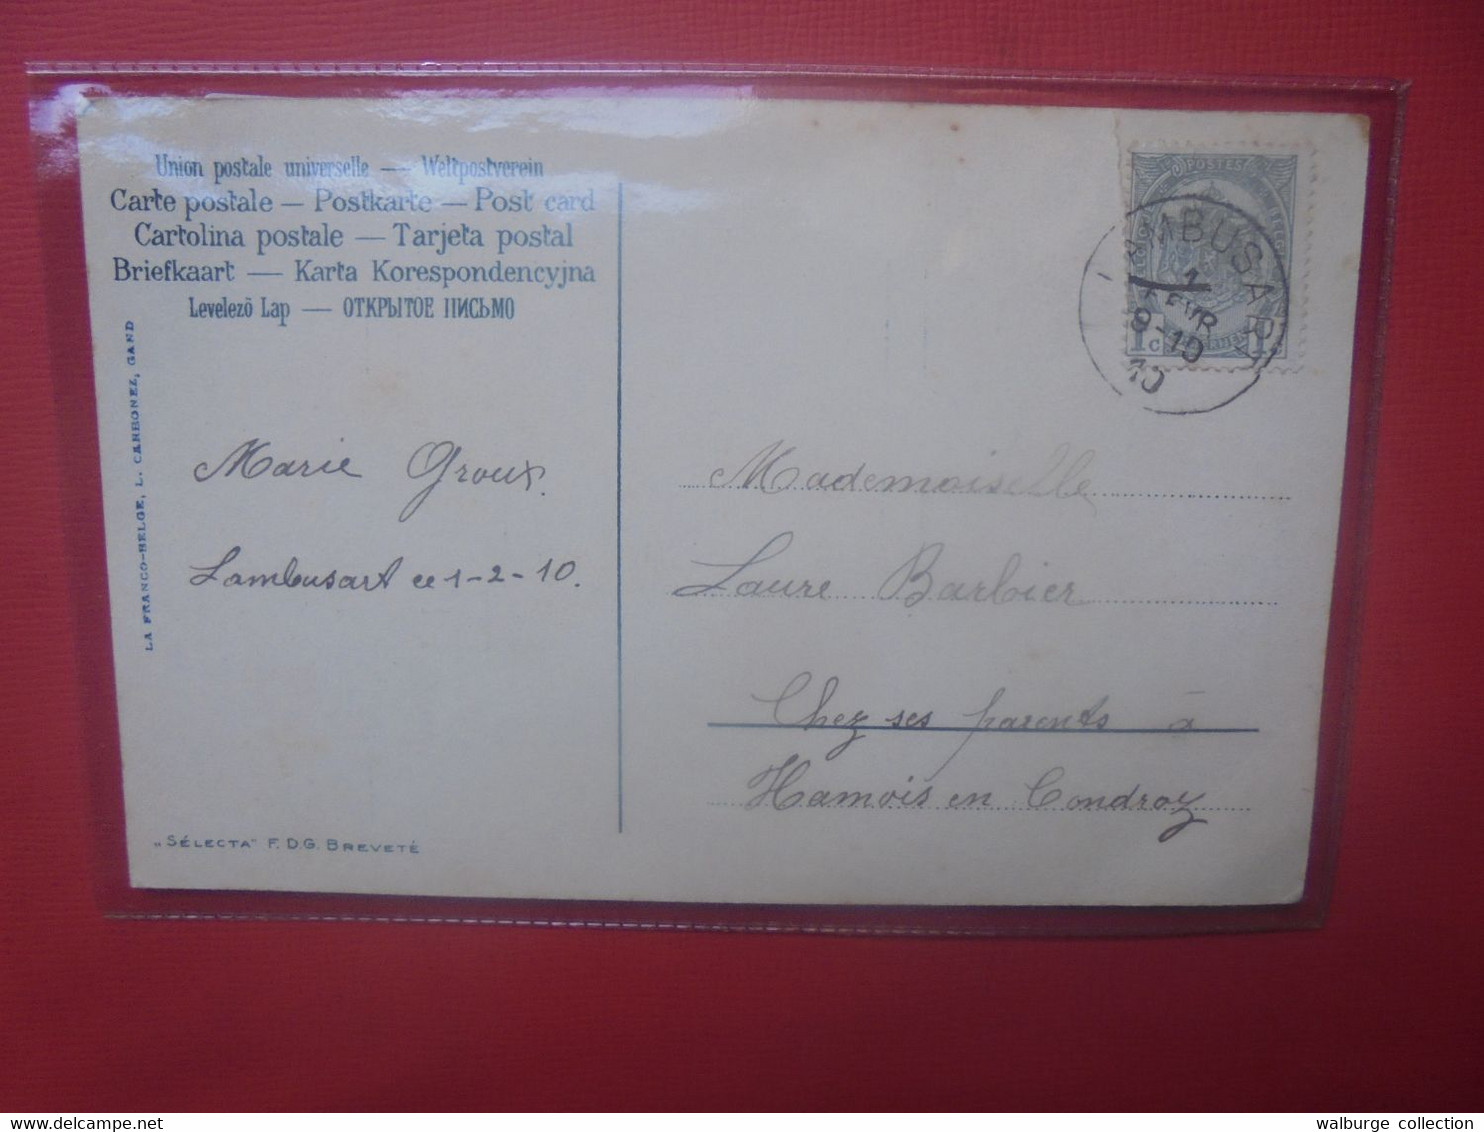 Union postale universelle — Weltpostverein
Carte postale — Postkarte — Post card
Cartolina postale — Tarjeta postal
Briefkaart — Karta Korespondencyjna
Levelező Lap — ОТКРЫТОЕ ПИСЬМО
LA FRANCO-BELGE, L. CARBONEZ, GAND
Marie Groux.
Lambusart ce 1-2-10.
„SÉLECTA" F.D.G. BREVETÉ
POSTES
LAMBUSART
1
FEVR
9-10
10
1 c
Mademoiselle
Laure Barbier
Chez ses parents à
Hamois en Condroz
delcampe.net
walburge collection